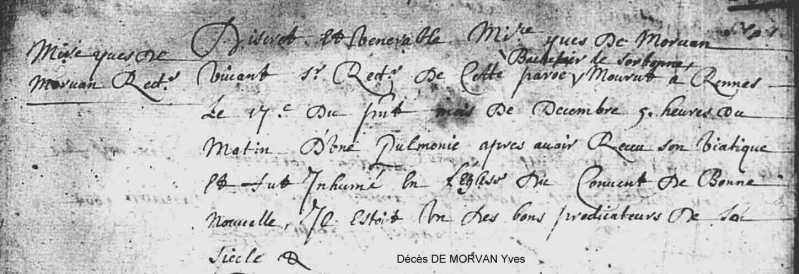 Mis.re yves De
Morvan Rect.r
Discret Et Venerable Mis.re yves De Morvan
Bachelier de sorbonne
Vivant s.r Rect.r De Cette paroe, Mourut a Rennes
Le 17.e Du p.nt mois De Decembre 5. heures Du
Matin D'Une Pulmonie apres avoir Receu son Viatique
Et fut Inhumé En L'Eglise Du Convent De Bonne
Nouvelle, Il Estoit Un Des bons predicateurs De son
Siecle &
Décés DE MORVAN Yves